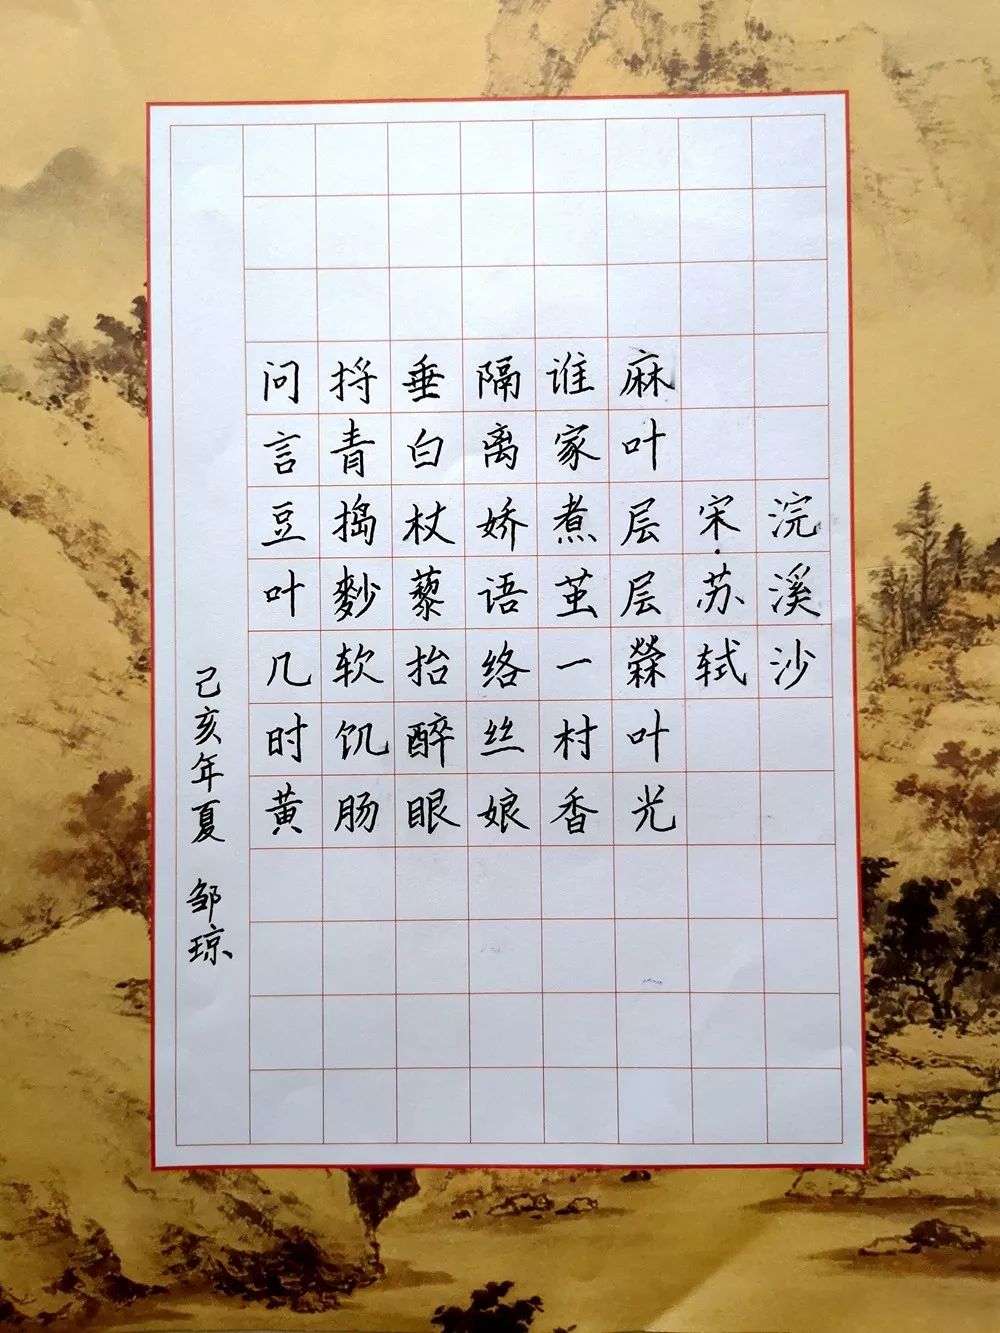 浣溪沙
宋·苏轼
麻叶层层檾叶光
谁家煮茧一村香
隔离娇语络丝娘
垂白杖藜抬醉眼
捋青捣麨软饥肠
问言豆叶几时黄
己亥年夏 邹琼